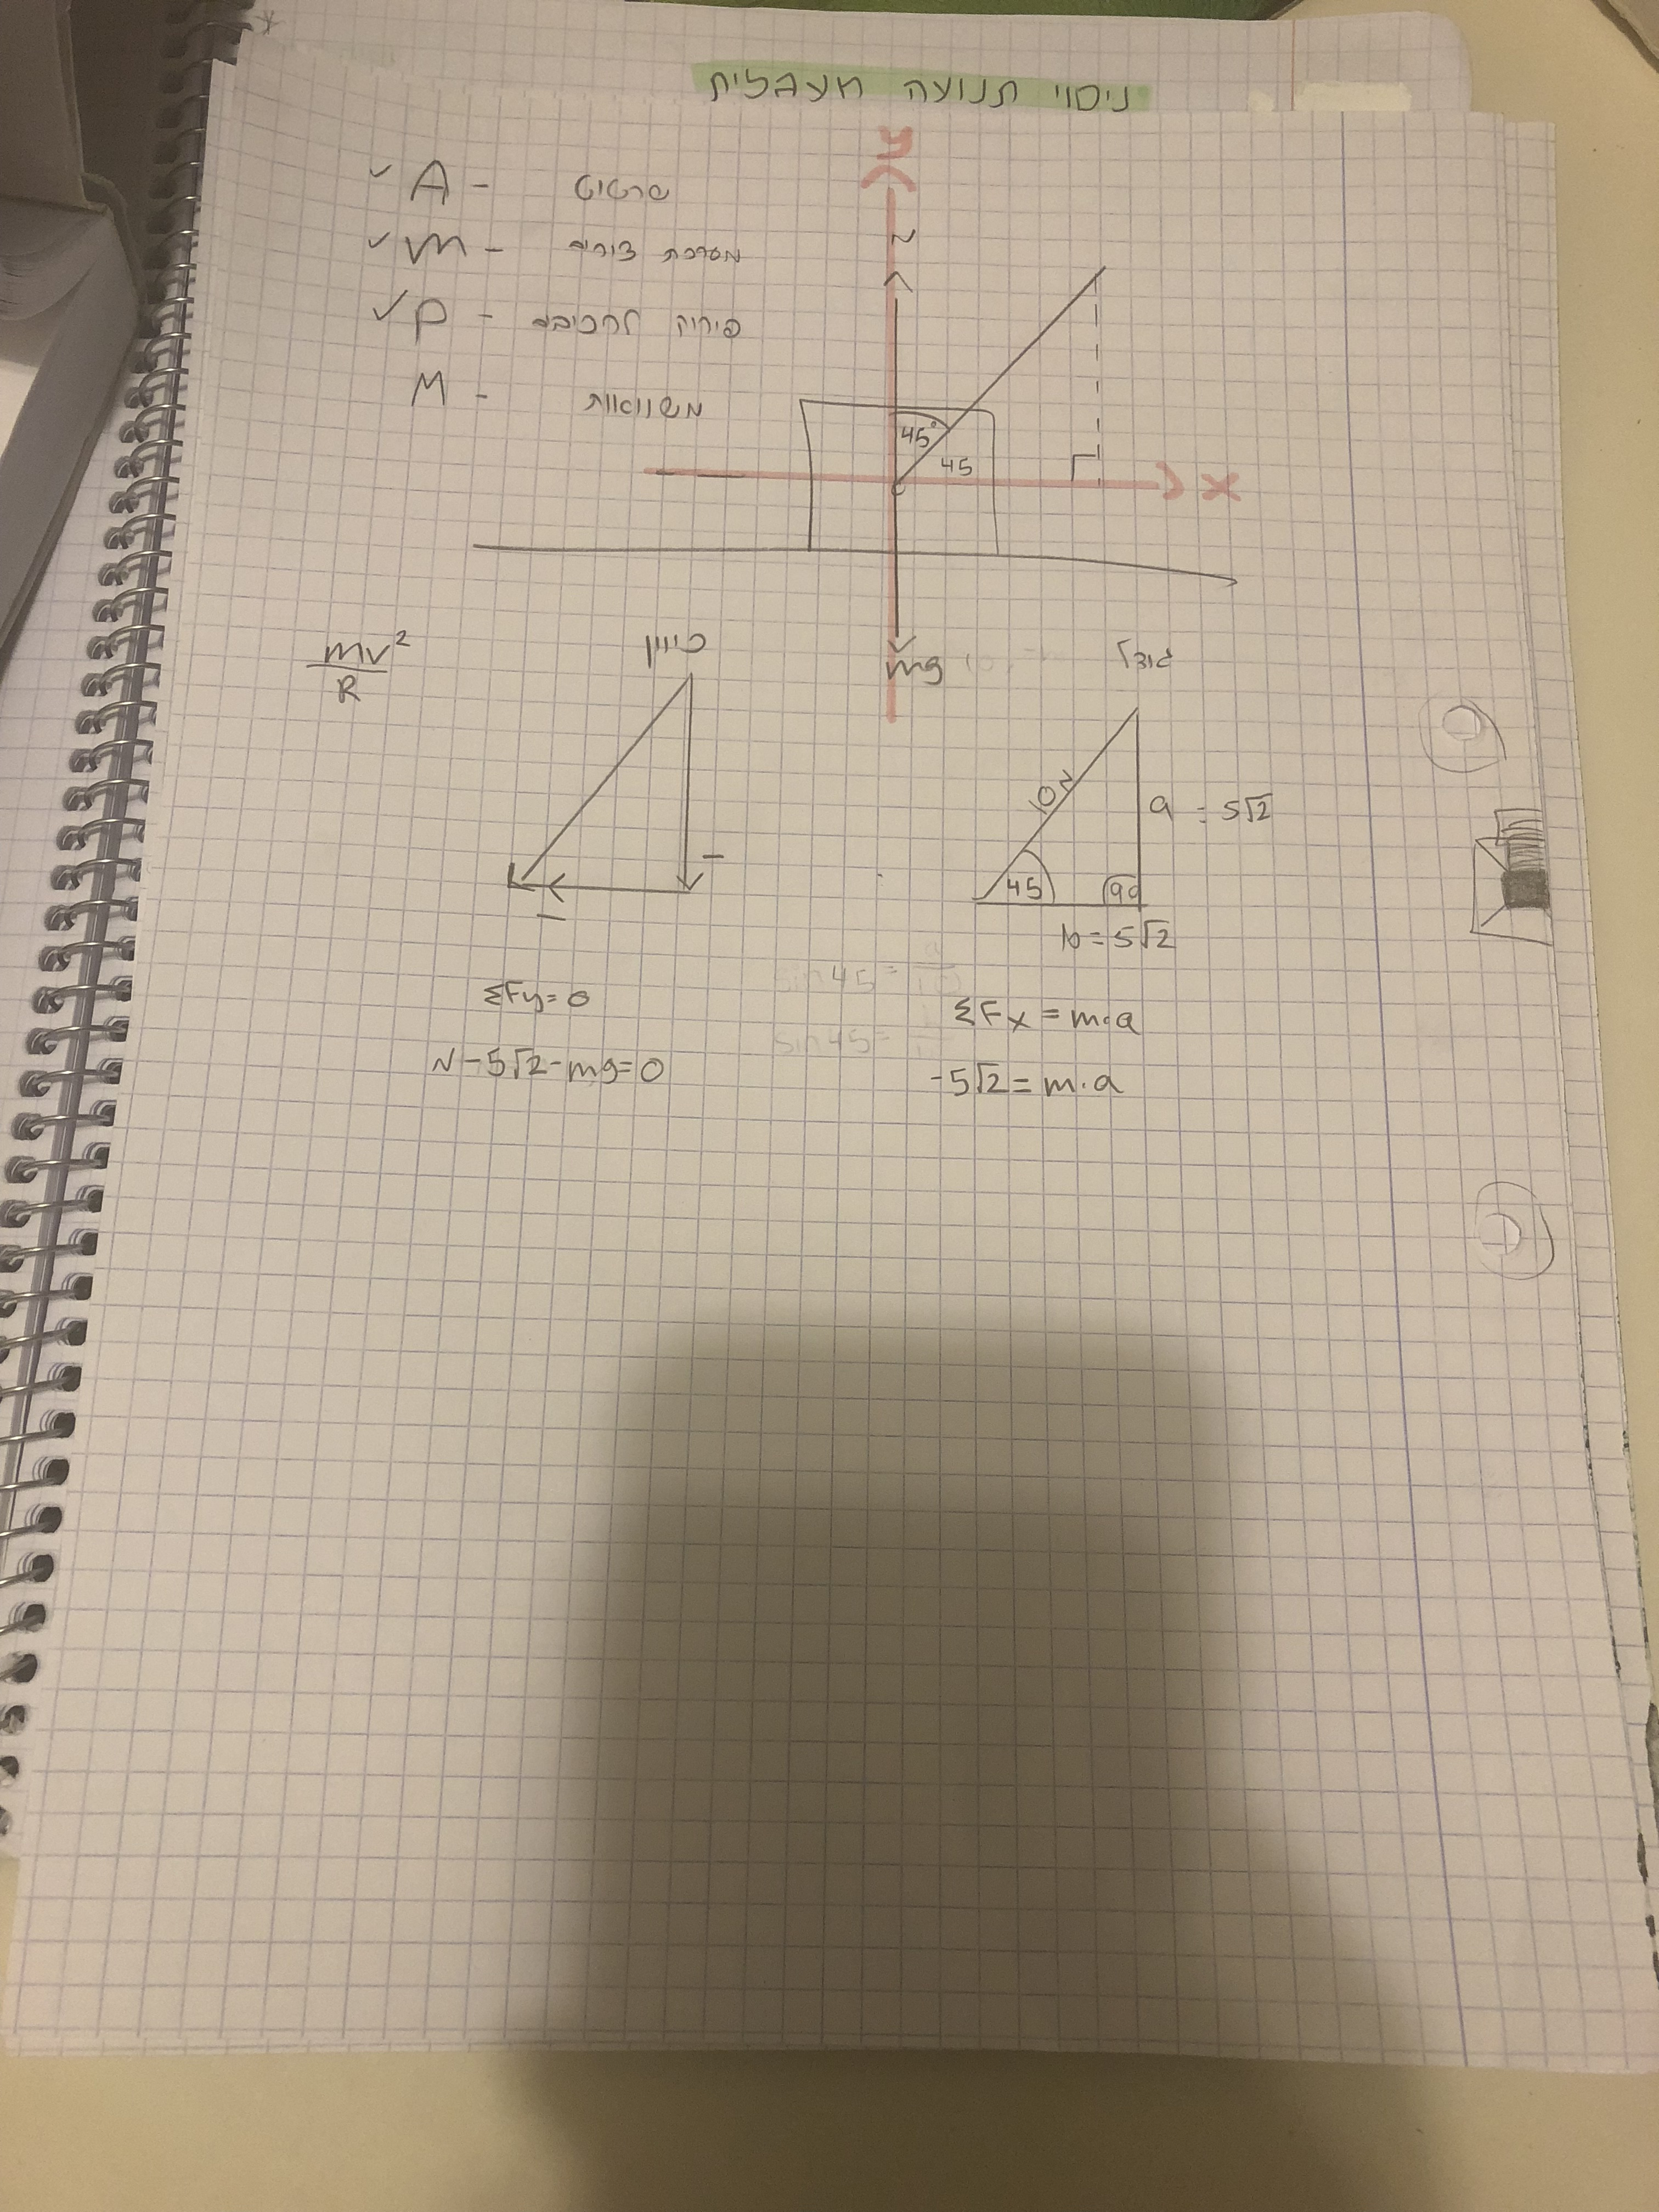 ניסוי תנועה מעגלית
A - שרטוט
m - מערכת צירים
P - פירוק לרכיבים
M - משוואות
y
N
45°
45
x
mg
mv²/R
כיוון
גודל
10N
a = 5√2
45
90
b = 5√2
-
-
sin 45 =
sin 45 =
ΣFy = 0
ΣFx = m·a
N - 5√2 - mg = 0
-5√2 = m·a